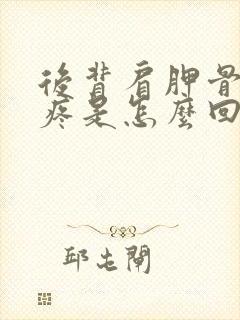 後背肩胛骨
疼是怎麼回
邱屯閘